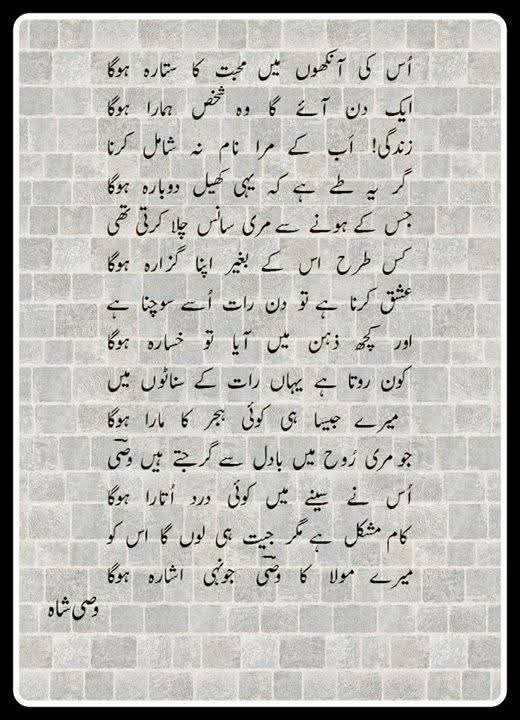 اُس کی آنکھوں میں محبت کا ستارہ ہوگا
ایک دن آئے گا وہ شخص ہمارا ہوگا
زندگی! اَب کے مرا نام نہ شامل کرنا
گر یہ طے ہے کہ یہی کھیل دوبارہ ہوگا
جس کے ہونے سے مری سانس چلا کرتی تھی
کس طرح اس کے بغیر اپنا گزارہ ہوگا
عشق کرنا ہے تو دِن رات اُسے سوچنا ہے
اور کچھ ذہن میں آیا تو خسارہ ہوگا
کون روتا ہے یہاں رات کے سناٹوں میں
میرے جیسا ہی کوئی ہجر کا مارا ہوگا
جو مری رُوح میں بادل سے گرجتے ہیں وصیؔ
اُس نے سینے میں کوئی درد اُتارا ہوگا
کام مشکل ہے مگر جیت ہی لوں گا اس کو
میرے مولا کا وصیؔ جونہی اشارہ ہوگا
وصی شاہ